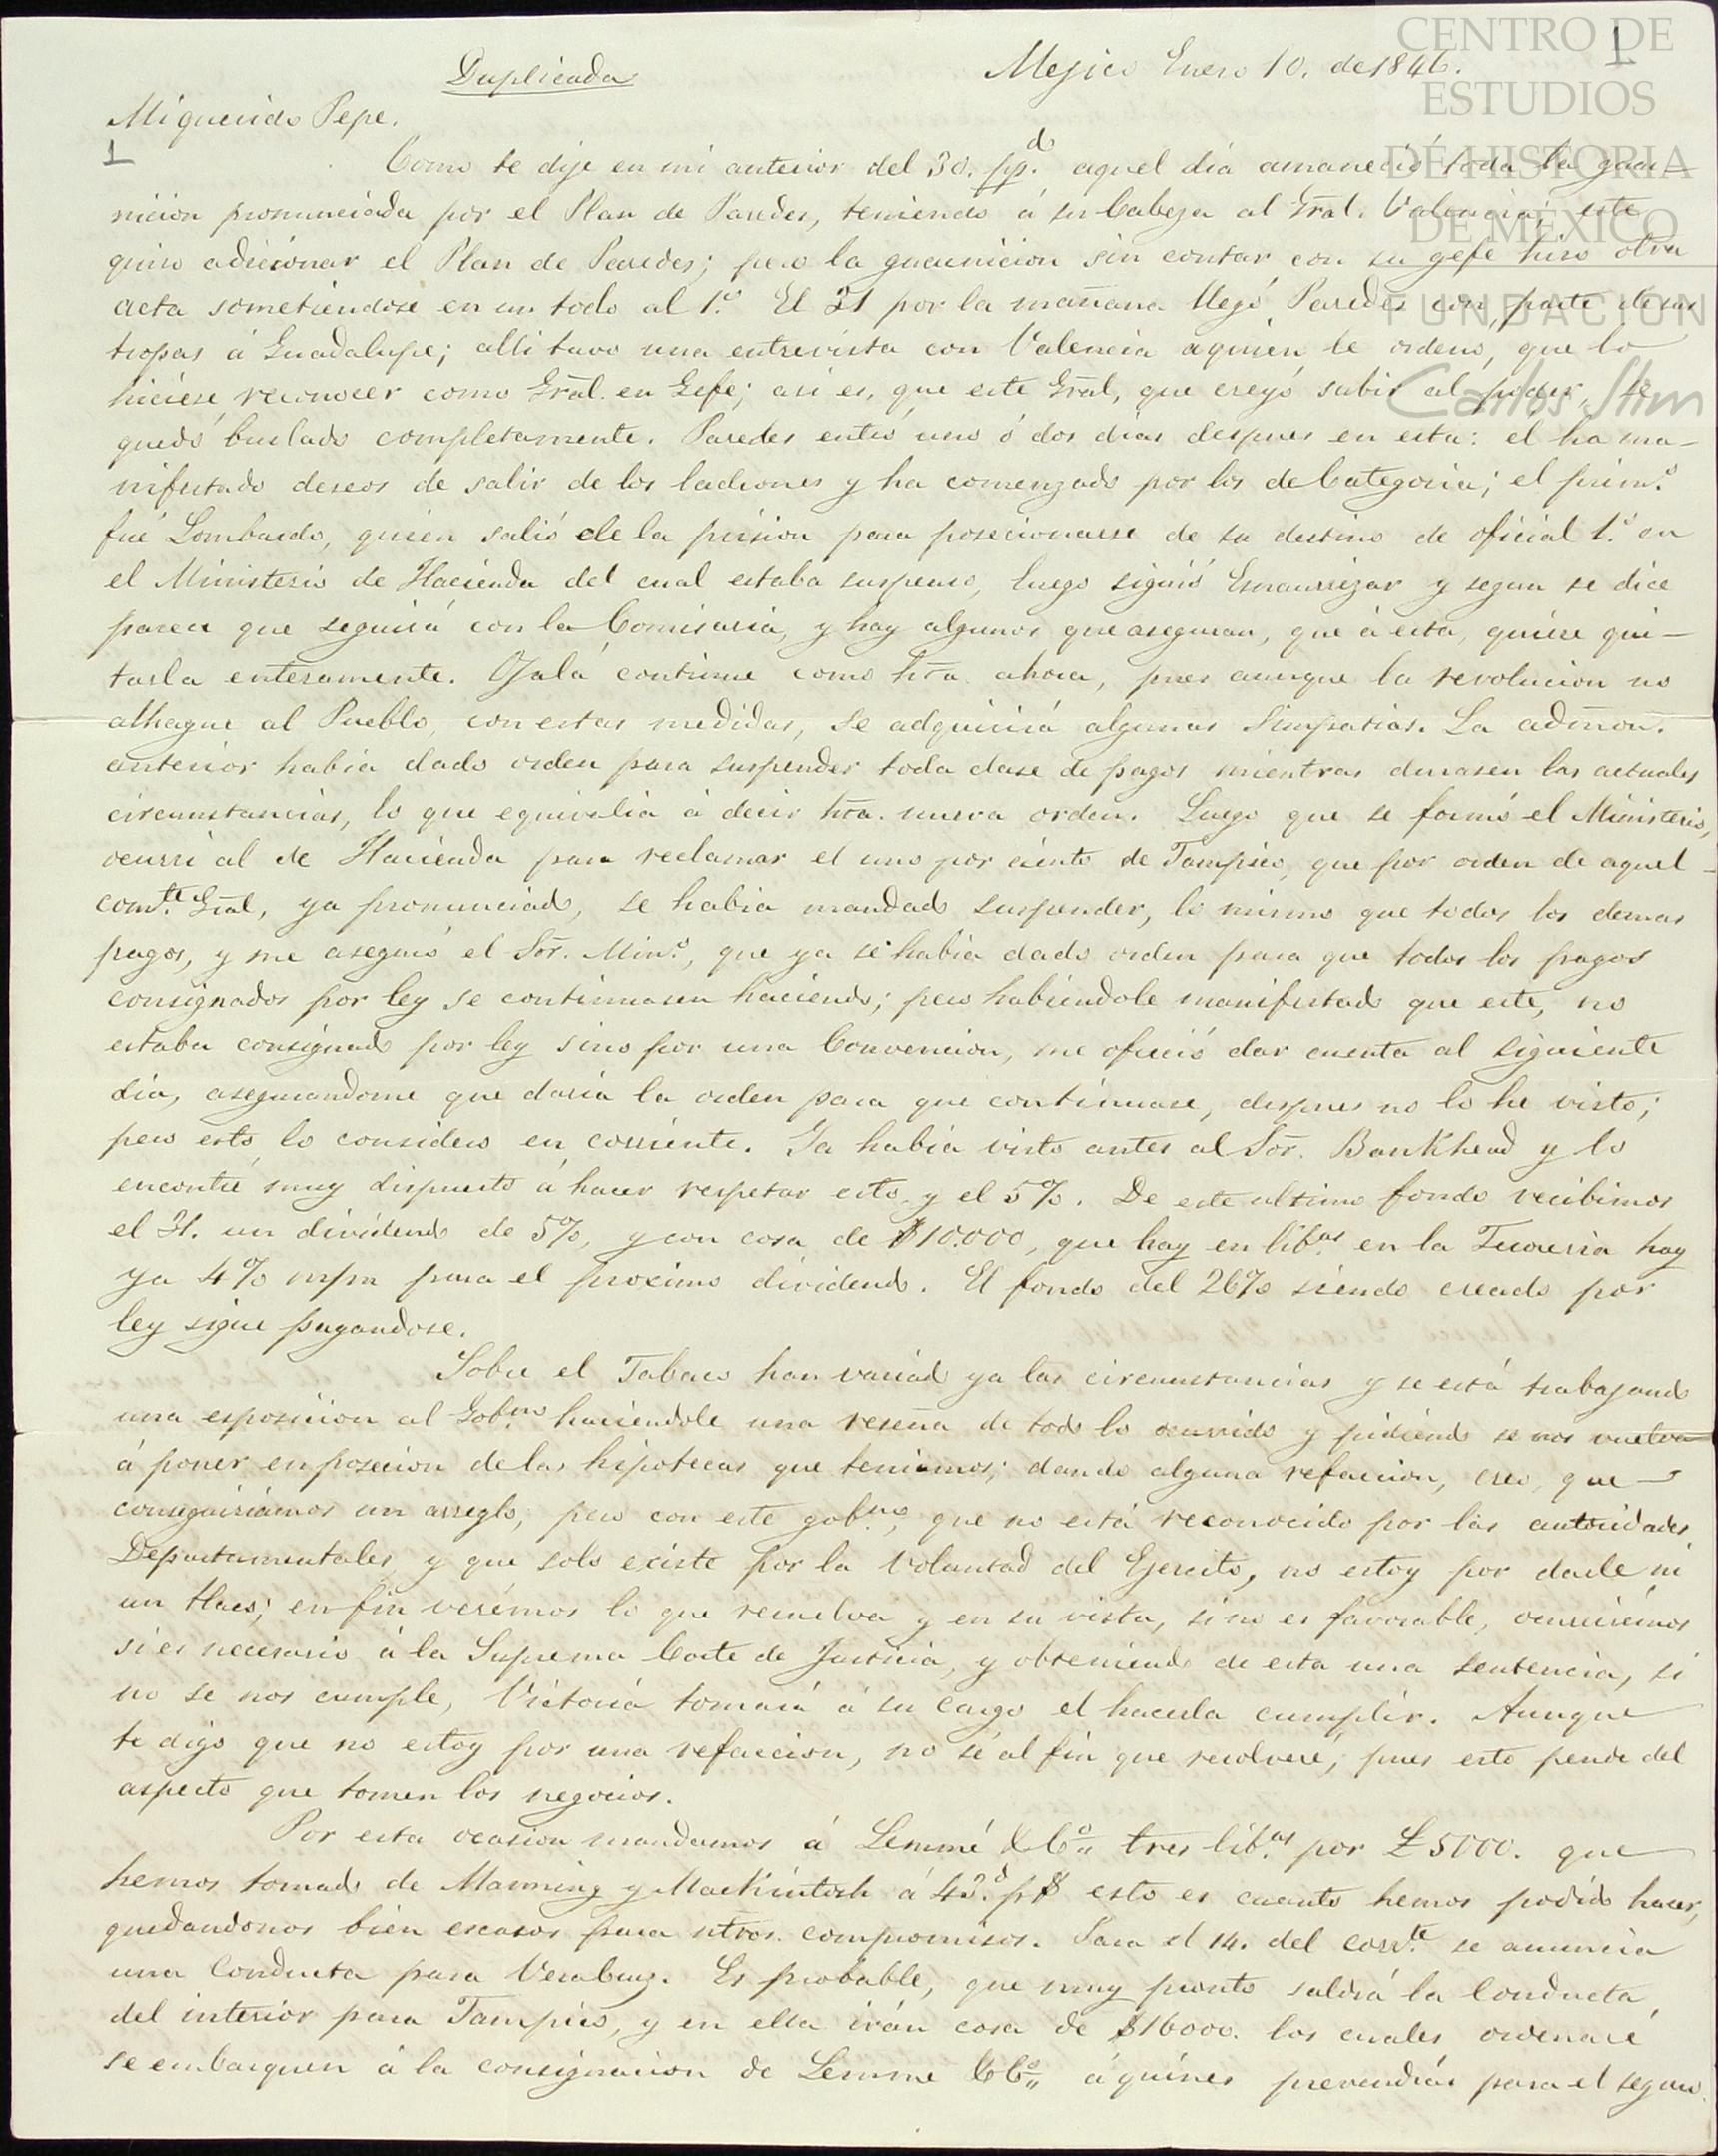 CENTRO DE
ESTUDIOS
DE HISTORIA
DE MÉXICO
FUNDACIÓN
Carlos Slim
1
Duplicada
Mejico Enero 10. de 1846.
Mi querido Pepe.
1
Como te dije en mi anterior del 30. pp.do aquel dia amaneció toda la guar-
nicion pronunciada por el Plan de Paredes, teniendo á su Cabeza al Gral. Valencia; este
quiso adicionar el Plan de Paredes; pero la guarnicion sin contar con su gefe hiso otra
acta sometiendose en un todo al 1.º El 31 por la mañana llegó Paredes con parte de sus
tropas á Guadalupe; alli tuvo una entrevista con Valencia aquien le ordenó, que lo
hiciese reconocer como Gral. en Gefe; asi es, que este Gral, que creyó subir al poder, se
quedó burlado completamente. Paredes entró uno ó dos dias despues en esta: el ha ma-
nifestado deseos de salir de los ladrones y ha comenzado por los de Categoria; el prim.º
fué Lombardo, quien salió de la prision para posecionarse de su destino de oficial 1.º en
el Ministerio de Hacienda del cual estaba suspenso, luego siguió Esnaurrizar y segun se dice
parece que seguirá con la Comisaria, y hay algunos que aseguran, que á esta, quiere qui-
tarla enteramente. Ojalá continue como hta. ahora, pues aunque la revolucion no
alhague al Pueblo, con estas medidas, se adquirirá algunas Simpatias. La admon.
anterior habia dado orden para suspender toda clase de pagos mientras durasen las actuales
circunstancias, lo que equivalia á decir hta. nueva orden. Luego que se formó el Ministerio,
ocurrí al de Hacienda para reclamar el uno por ciento de Tampico, que por orden de aquel
com.te Gral, ya pronunciado, se habia mandado suspender, lo mismo que todos los demas
pagos, y me aseguró el Sor. Min.º, que ya se habia dado orden para que todos los pagos
consignados por ley se continuasen haciendo; pero habiendole manifestado que este, no
estaba consignado por ley sino por una Convencion, me ofreció dar cuenta al siguiente
dia, asegurandome que daria la orden para que continuase, despues no lo he visto;
pero esto lo considero en corriente. Ya habia visto antes al Sor. BanKhead y lo
encontré muy dispuesto á hacer respetar esto y el 5%. De este ultimo fondo recibimos
el 31. un dividendo de 5%, y con cosa de $10.000, que hay en lib.as en la Tesoreria hay
ya 4% m/m para el procsimo dividendo. El fondo del 26% siendo creado por
ley sigue pagandose.
Sobre el Tabaco han variado ya las circunstancias y se está trabajando
una esposicion al Gob.no haciendole una reseña de todo lo ocurrido y pidiendo se nos vuelva
á poner en posecion de las hipotecas que teniamos; dando alguna refaccion, creo, que
conseguiriamos un arreglo, pero con este gob.no, que no está reconocido por las autoridades
Departamentales y que solo ecsiste por la voluntad del Ejercito, no estoy por darle ni
un tlaco; en fin verémos lo que resuelva y en su vista, si no es favorable, ocurrirémos
si es necesario á la Suprema Corte de Justicia, y obteniendo de esta una sentencia, si
no se nos cumple, Victoria tomará á su cargo el hacerla cumplir. Aunque
te digo que no estoy por una refaccion, no sé al fin que resolveré, pues esto pende del
aspecto que tomen los negocios.
Por esta ocasion mandamos á Lemmé & Cº tres lib.as por £5000. que
hemos tomado de Manning y MacKintosh á 43.d p$ esto es cuanto hemos podido hacer,
quedandonos bien escasos para ntros. compromisos. Para el 14. del corr.te se anuncia
una Conducta para VeraCruz. Es probable, que muy pronto saldrá la Conducta
del interior para Tampico, y en ella irán cosa de $16000. los cuales ordenaré
se embarquen á la consignacion de Lemme & Cº á quienes prevendrás para el seguro.